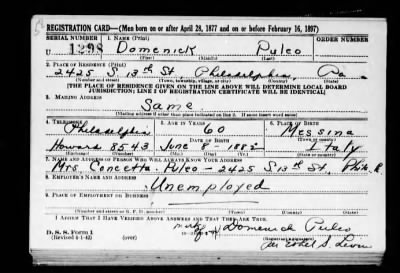 REGISTRATION CARD—(Men born on or after April 28, 1877 and on or before February 16, 1897)
SERIAL NUMBER 1. NAME (Print) ORDER NUMBER
U 1298 Domenick Puleo
(First) (Middle) (Last)
2. PLACE OF RESIDENCE (Print)
2425 S. 13th St., Philadelphia, Pa.
(Number and street) (Town, township, village, or city) (County) (State)
[THE PLACE OF RESIDENCE GIVEN ON THE LINE ABOVE WILL DETERMINE LOCAL BOARD
JURISDICTION; LINE 2 OF REGISTRATION CERTIFICATE WILL BE IDENTICAL]
3. MAILING ADDRESS
Same
[Mailing address if other than place indicated on line 2. If same insert word same]
4. TELEPHONE 5. AGE IN YEARS 6. PLACE OF BIRTH
Philadelphia 60 Messina
DATE OF BIRTH
Howard 8543 June 8 - 1882 Italy
7. NAME AND ADDRESS OF PERSON WHO WILL ALWAYS KNOW YOUR ADDRESS
Mrs. Concetta Puleo - 2425 S 13th St., Phila. Pa.
8. EMPLOYER'S NAME AND ADDRESS
Unemployed
9. PLACE OF EMPLOYMENT OR BUSINESS
(Number and street or R. F. D. number) (Town) (County) (State)
I AFFIRM THAT I HAVE VERIFIED ABOVE ANSWERS AND THAT THEY ARE TRUE.
D. S. S. Form 1 Domenick Puleo
(Revised 4-1-42) (Registrant's signature)
per Ethel S. Levin